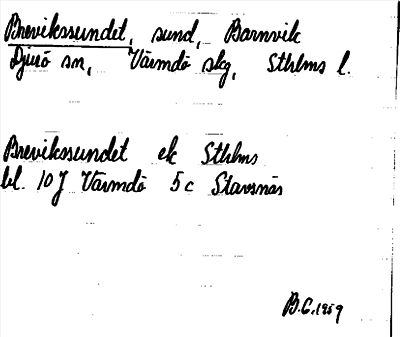 Brevikssundet, sund, Barnvik
Djurö sn, Värmdö skg, Sthlms l.
Brevikssundet ek Sthlms
bl. 10 J Värmdö 5 c Stavsnäs
B.G. 1959